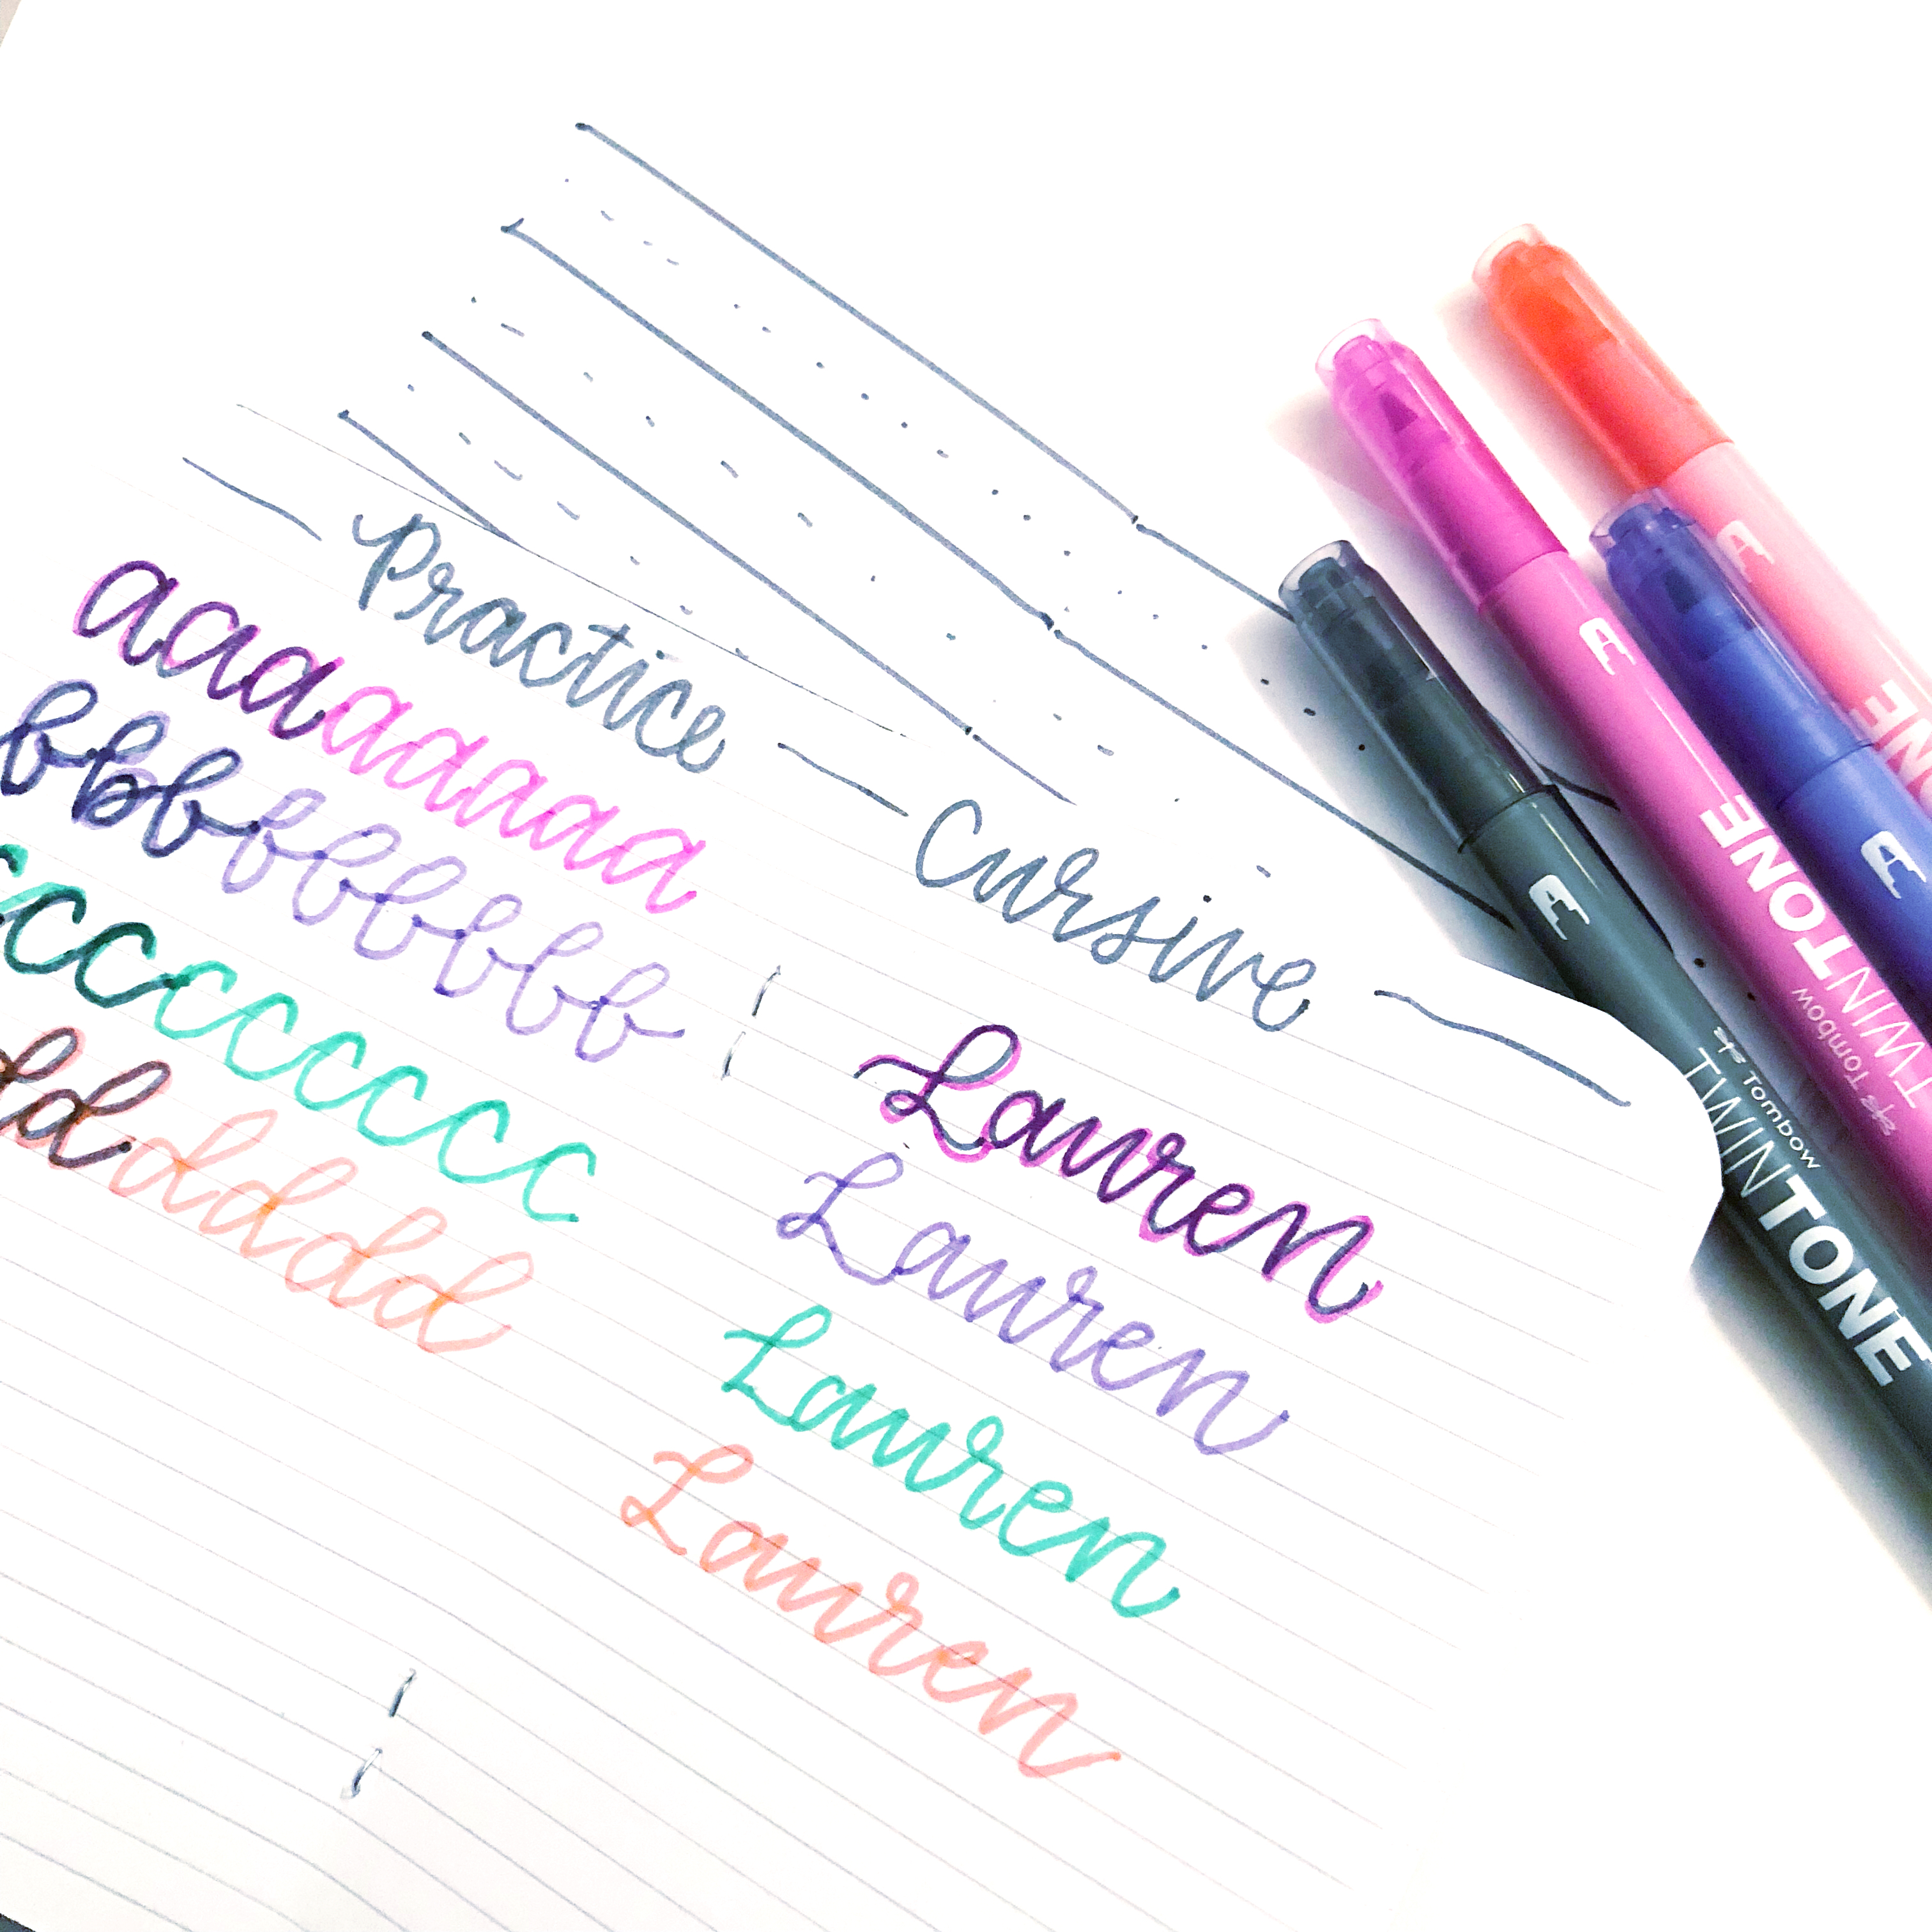 practice cursive
aaaaaaaa
bbbbbbbbb
ccccccccc
dddddd
Lauren
Lauren
Lauren
Lauren
Tombow
TWINTONE
Tombow
TWINTONE
NE